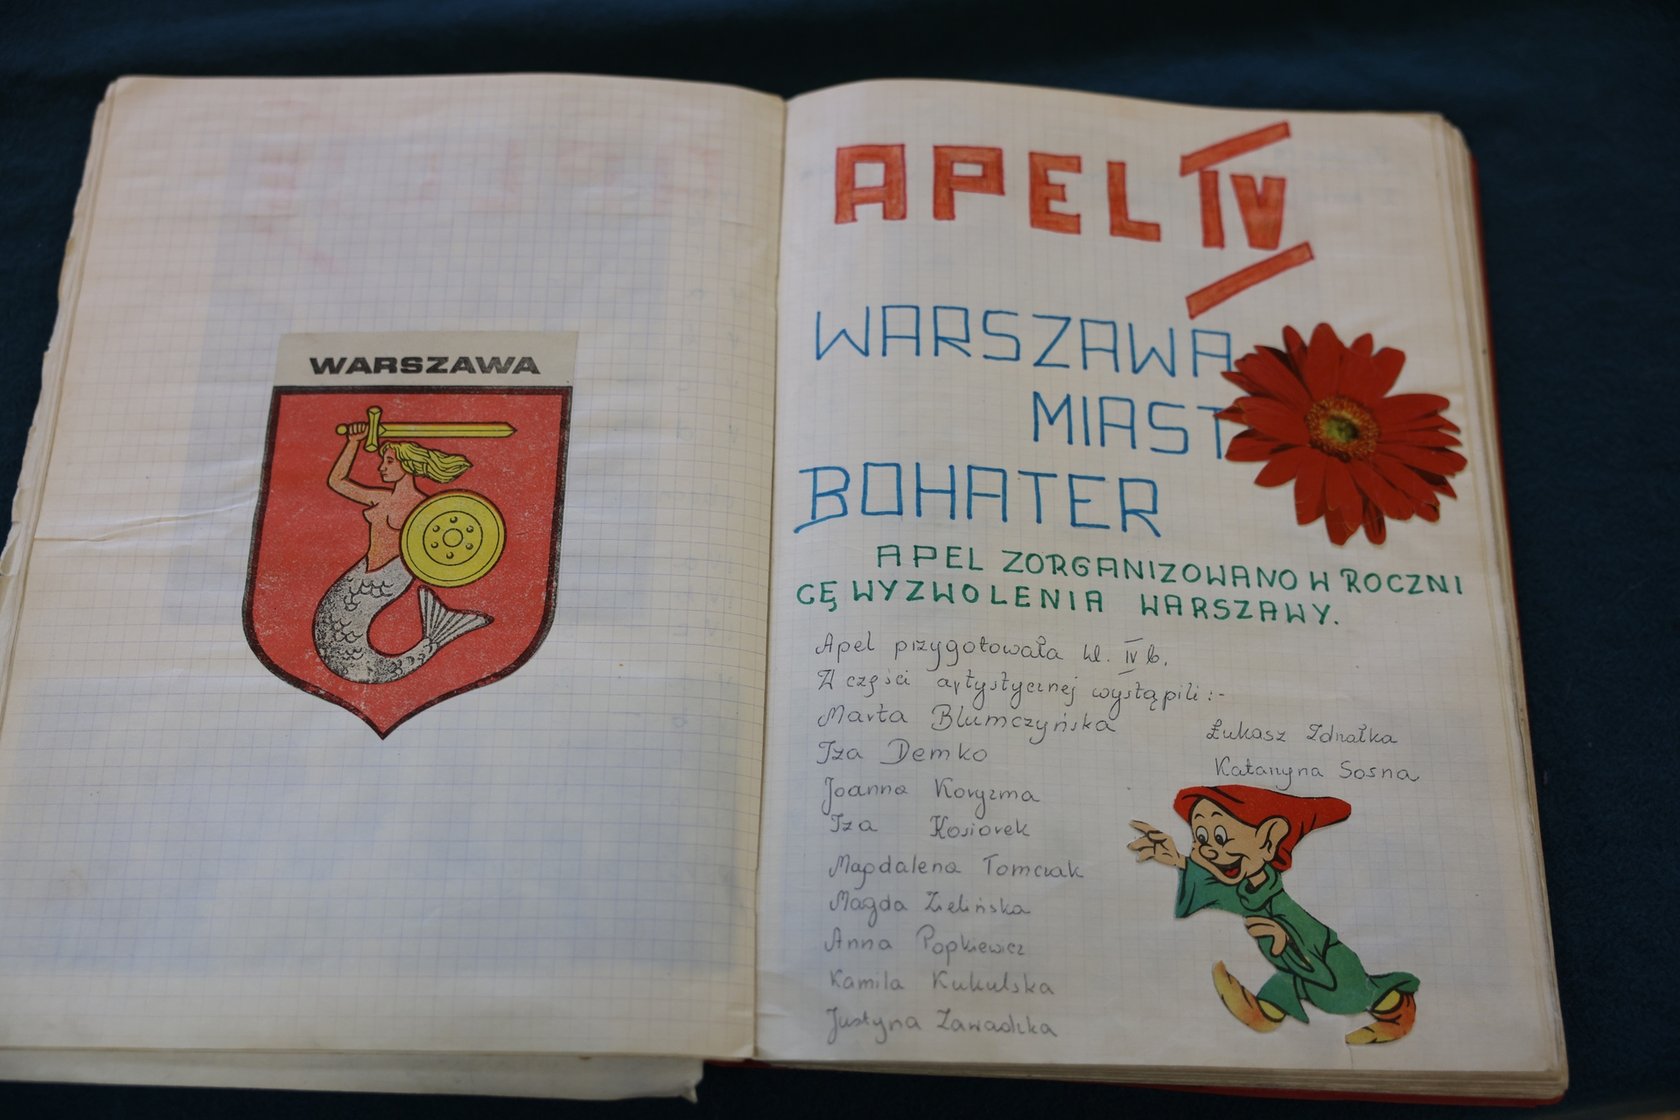 WARSZAWA
APEL IV
WARSZAWA
MIAST
BOHATER
APEL ZORGANIZOWANO W ROCZNI
CĘ WYZWOLENIA WARSZAWY.
Apel przygotowała kl. IV b.
W części artystycznej wystąpili:-
Marta Blumczyńska
Iza Demko
Joanna Koryzma
Iza Kosiorek
Magdalena Tomczak
Magda Zielińska
Anna Popkiewicz
Kamila Kukulska
Justyna Zawadzka
Łukasz Zdnałka
Katarzyna Sosna